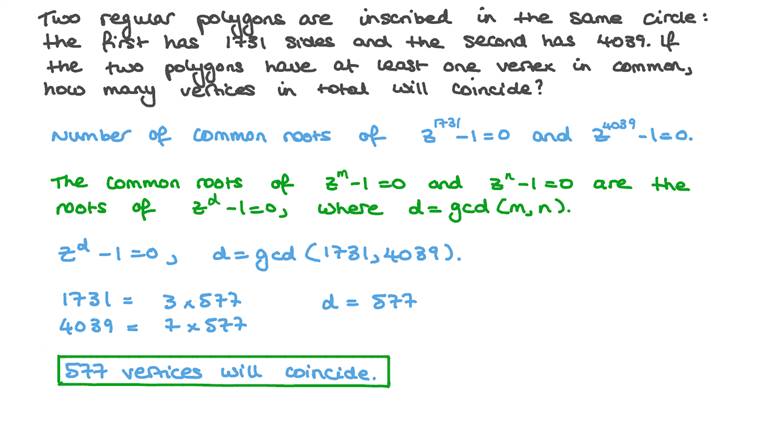 Two regular polygons are inscribed in the same circle:
the first has 1731 sides and the second has 4039. If
the two polygons have at least one vertex in common,
how many vertices in total will coincide?
Number of common roots of z^1731 - 1 = 0 and z^4039 - 1 = 0.
The common roots of z^m - 1 = 0 and z^n - 1 = 0 are the
roots of z^d - 1 = 0, where d = gcd (m, n).
z^d - 1 = 0, d = gcd (1731, 4039).
1731 = 3 × 577 d = 577
4039 = 7 × 577
577 vertices will coincide.